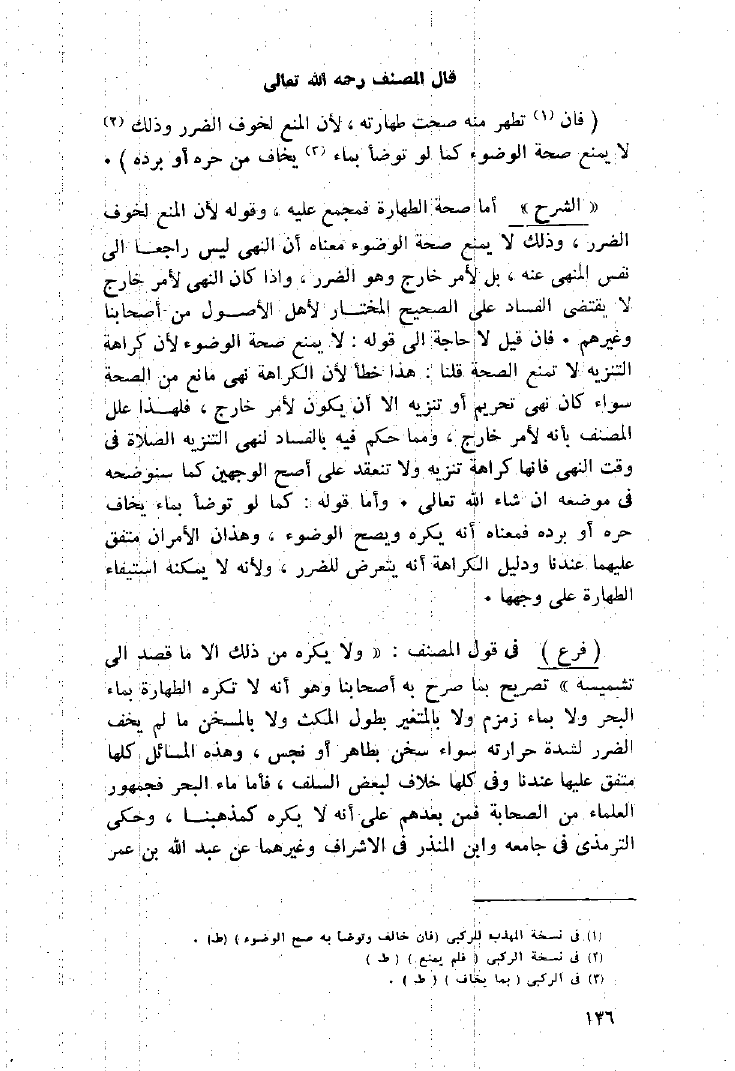 قال المصنف رحمه الله تعالى
( فان (١) تطهر منه صحت طهارته ، لأن المنع لخوف الضرر وذلك (٢)
لا يمنع صحة الوضوء كما لو توضأ بماء (٣) يخاف من حره أو برده ) ٠
« الشرح » أما صحة الطهارة فمجمع عليه ، وقوله لأن المنع لخوف
الضرر ، وذلك لا يمنع صحة الوضوء معناه أن النهى ليس راجعا الى
نفس المنهى عنه ، بل لأمر خارج وهو الضرر ، واذا كان النهى لأمر خارج
لا يقتضى الفساد على الصحيح المختار لأهل الأصول من أصحابنا
وغيرهم ٠ فان قيل لا حاجة الى قوله : لا يمنع صحة الوضوء لأن كراهة
التنزيه لا تمنع الصحة قلنا : هذا خطأ لأن الكراهة نهى مانع من الصحة
سواء كان نهى تحريم أو تنزيه الا أن يكون لأمر خارج ، فلهذا علل
المصنف بأنه لأمر خارج ، ومما حكم فيه بالفساد لنهى التنزيه الصلاة فى
وقت النهى فانها كراهة تنزيه ولا تنعقد على أصح الوجهين كما سنوضحه
فى موضعه ان شاء الله تعالى ٠ وأما قوله : كما لو توضأ بماء يخاف
حره أو برده فمعناه أنه يكره ويصح الوضوء ، وهذان الأمران متفق
عليهما عندنا ودليل الكراهة أنه يتعرض للضرر ، ولأنه لا يمكنه استيفاء
الطهارة على وجهها ٠
( فرع ) فى قول المصنف : « ولا يكره من ذلك الا ما قصد الى
تشميسه » تصريح بما صرح به أصحابنا وهو أنه لا تكره الطهارة بماء
البحر ولا بماء زمزم ولا بالمتغير بطول المكث ولا بالمسخن ما لم يخف
الضرر لشدة حرارته سواء سخن بطاهر أو نجس ، وهذه المسائل كلها
متفق عليها عندنا وفى كلها خلاف لبعض السلف ، فأما ماء البحر فجمهور
العلماء من الصحابة فمن بعدهم على أنه لا يكره كمذهبنا ، وحكى
الترمذى فى جامعه وابن المنذر فى الاشراف وغيرهما عن عبد الله بن عمر
(١) فى نسخة المهذب للركبى (فان خالف وتوضأ به صح الوضوء ) (ط) ٠
(٢) فى نسخة الركبى ( فلم يمنع ) ( ط )
(٣) فى الركبى ( بما يخاف ) ( ط ) ٠
١٣٦